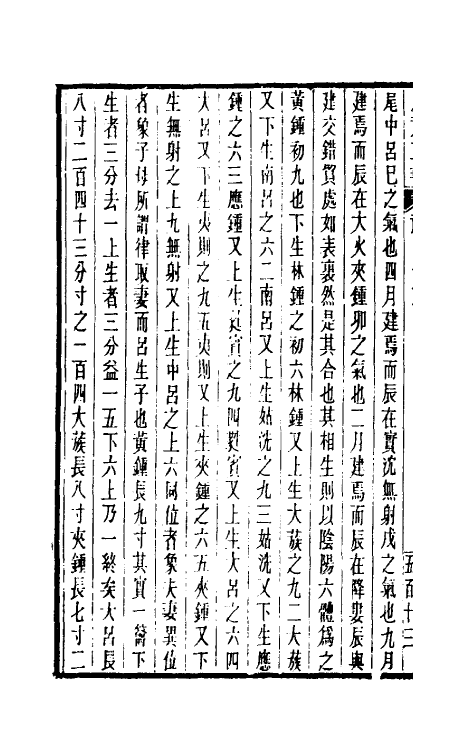 尾中呂巳之氣也四月建焉而辰在實沈無射戌之氣也九月
建焉而辰在大火夾鍾卯之氣也二月建焉而辰在降婁辰與
建交錯貿處如表裏然是其合也其相生則以陰陽六體爲之
黃鍾初九也下生林鍾之初六林鍾又上生大蔟之九二大蔟
又下生南呂之六二南呂又上生姑洗之九三姑洗又下生應
鍾之六三應鍾又上生蕤賓之九四蕤賓又上生大呂之六四
大呂又下生夷則之九五夷則又上生夾鍾之六五夾鍾又下
生無射之上九無射又上生中呂之上六同位者象夫妻異位
者象子母所謂律取妻而呂生子也黃鍾長九寸其實一籥下
生者三分去一上生者三分益一五下六上乃一終矣大呂長
八寸二百四十三分寸之一百四大蔟長八寸夾鍾長七寸二